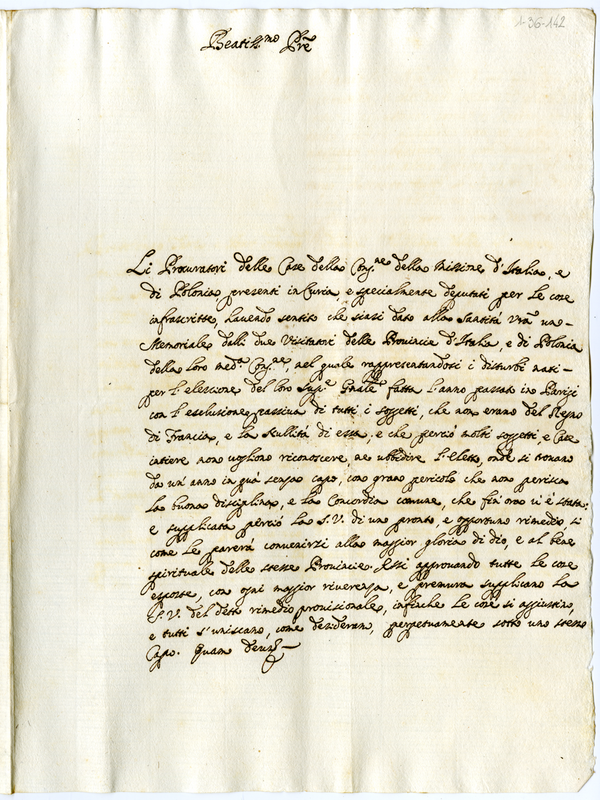 1-36-142
Beatiss.mo Pre
Li Procuratori delle Case della Cong.ne della Missione d'Italia, e
di Polonia, presenti in Curia, e specialmente deputati per le cose
infrascritte, havendo sentito che siasi dato alla Santità Vra un-
Memoriale delli due Visitatori delle Provincie d'Italia, e di Polonia
della loro med.a Cong.ne, nel quale rappresentandosi i disturbi nati-
per l'elezione del loro Sup.e Gnale fatta l'anno passato in Parigi
con l'esclusione passiva di tutti i soggetti, che non erano del Regno
di Francia, e la Nullità di essa, e che perciò molti soggetti, e Case
intiere non vogliono riconoscere, ne ubbidire l'eletto, onde si trovano
da un'anno in quà senza capo, con gran pericolo che non perisca
la buona disciplina, e la Concordia comune, che fin'ora vi è stata;
e supplicata perciò la S.V. di uno pronto, e opportuno rimedio, si
come le parerà convenirsi alla maggior gloria di Dio, e al bene
spirituale delle stesse Provincie. Essi approvando tutte le cose
esposte, con ogni maggior riverenza, e premura supplicano la
S.V. del detto rimedio provisionale, infinche le cose si aggiustino,
e tutti s'uniscano, come desiderano, perpetuamente sotto uno stesso
Capo. Quam Deus